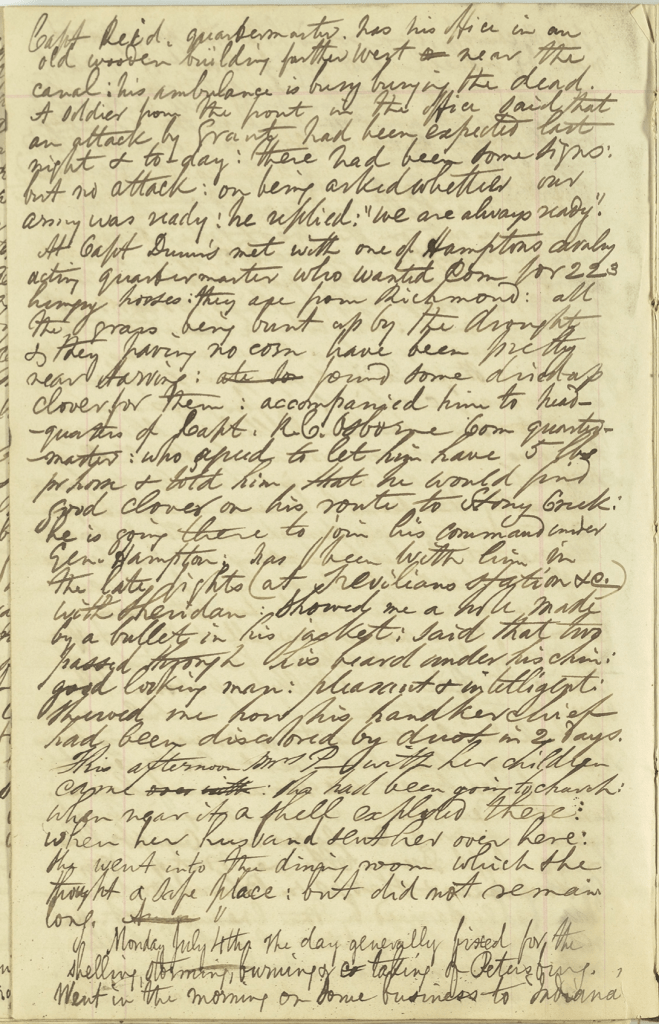 Capt Reid, quartermaster, has his office in an
old wooden building further west near the
canal: his ambulance is busy burying the dead.
A soldier from the front in the office said that
an attack by Grant had been expected last
night & to-day: there had been some signs:
but no attack: on being asked whether our
army was ready: he replied: "we are always ready".
At Capt Dunn's met with one of Hamptons cavalry
acting quartermaster who wanted Corn for 223
hungry horses: they are from Richmond: all
the grass being burnt up by the drought
& they having no corn have been pretty
near starving: found some dried up
clover for them: accompanied him to head-
-quarters of Capt. R.C. Osborne Com quarter-
-master: who agreed to let him have 5 lbs
pr horse & told him that he would find
good clover on his route to Stony Creek:
he is going there to join his command under
Gen. Hampton: has been with him in
the late fights (at Trevilians station &c.)
with Sheridan: showed me a hole made
by a bullet in his jacket: said that two
passed through his beard under his chin:
good looking man: pleasant & intelligent:
showed me how his handkerchief
had been discolored by dust in 2 days.
This afternoon Mrs P with her children
came over: she had been going to church:
when near it, a shell exploded there:
when her husband sent her over here:
they went into the dining room which she
thought a safe place: but did not remain
long.
Monday July 4th The day generally fixed for the
shelling, storming, burning & or taking of Petersburg.
Went in the morning on some business to Indiana